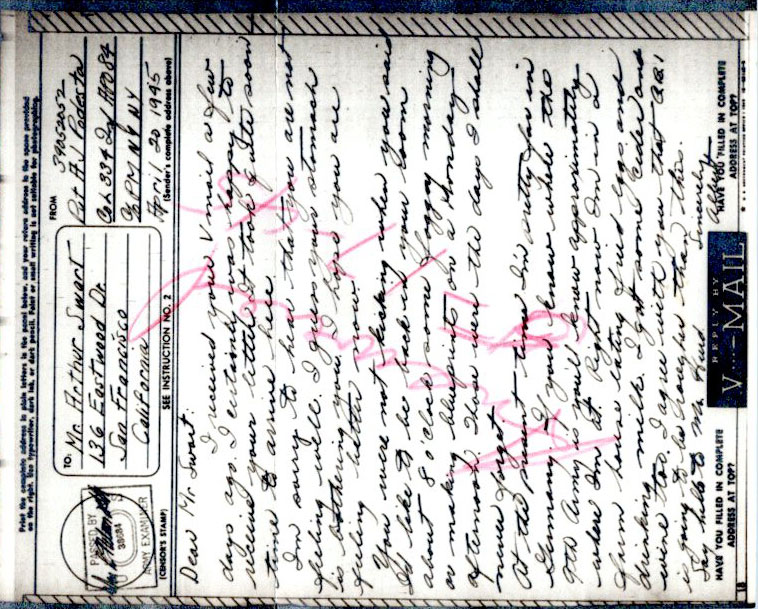 Print the complete address in plain letters in the panel below, and your return address in the space provided
on the right. Use typewriter, dark ink, or dark pencil. Faint or small writing is not suitable for photographing.
TO.
Mr. Arthur Swart
136 Eastwood Dr.
San Francisco
California
FROM
34052052
Pvt A.J.
Co L 334 Inf APO 84
℅ PM NY NY
April 20 1945
(Sender's complete address above)
PASSED BY
38684
ARMY EXAMINER
(CENSOR'S STAMP)
SEE INSTRUCTION NO. 2
Dear Mr. Swart:
I received your V mail a few
days ago. I certainly was happy to
receive your letter. It took quite soon
time to arrive here.
Im sorry to hear that you are not
feeling well. I guess your stomach
is bothering you. I hope you are
feeling better now.
You were not kidding when you said
I'd like to be back in your room
about 8 o'clock some foggy morning
or making blueprints on a Monday
afternoon. Those were the days I shall
never forget.
At the present time I'm pretty far in
Germany. If you know where the
9th Army is you'll know approximately
where I'm at. Right now I'm in a
farm house eating fried eggs and
drinking milk. I got some cider and
wine too. I agree with you that CBI
is going to be tougher than this.
Say hello to Mr.
Sincerely
Albert
HAVE YOU FILLED IN COMPLETE
ADDRESS AT TOP?
REPLY BY
V···—MAIL
HAVE YOU FILLED IN COMPLETE
ADDRESS AT TOP?